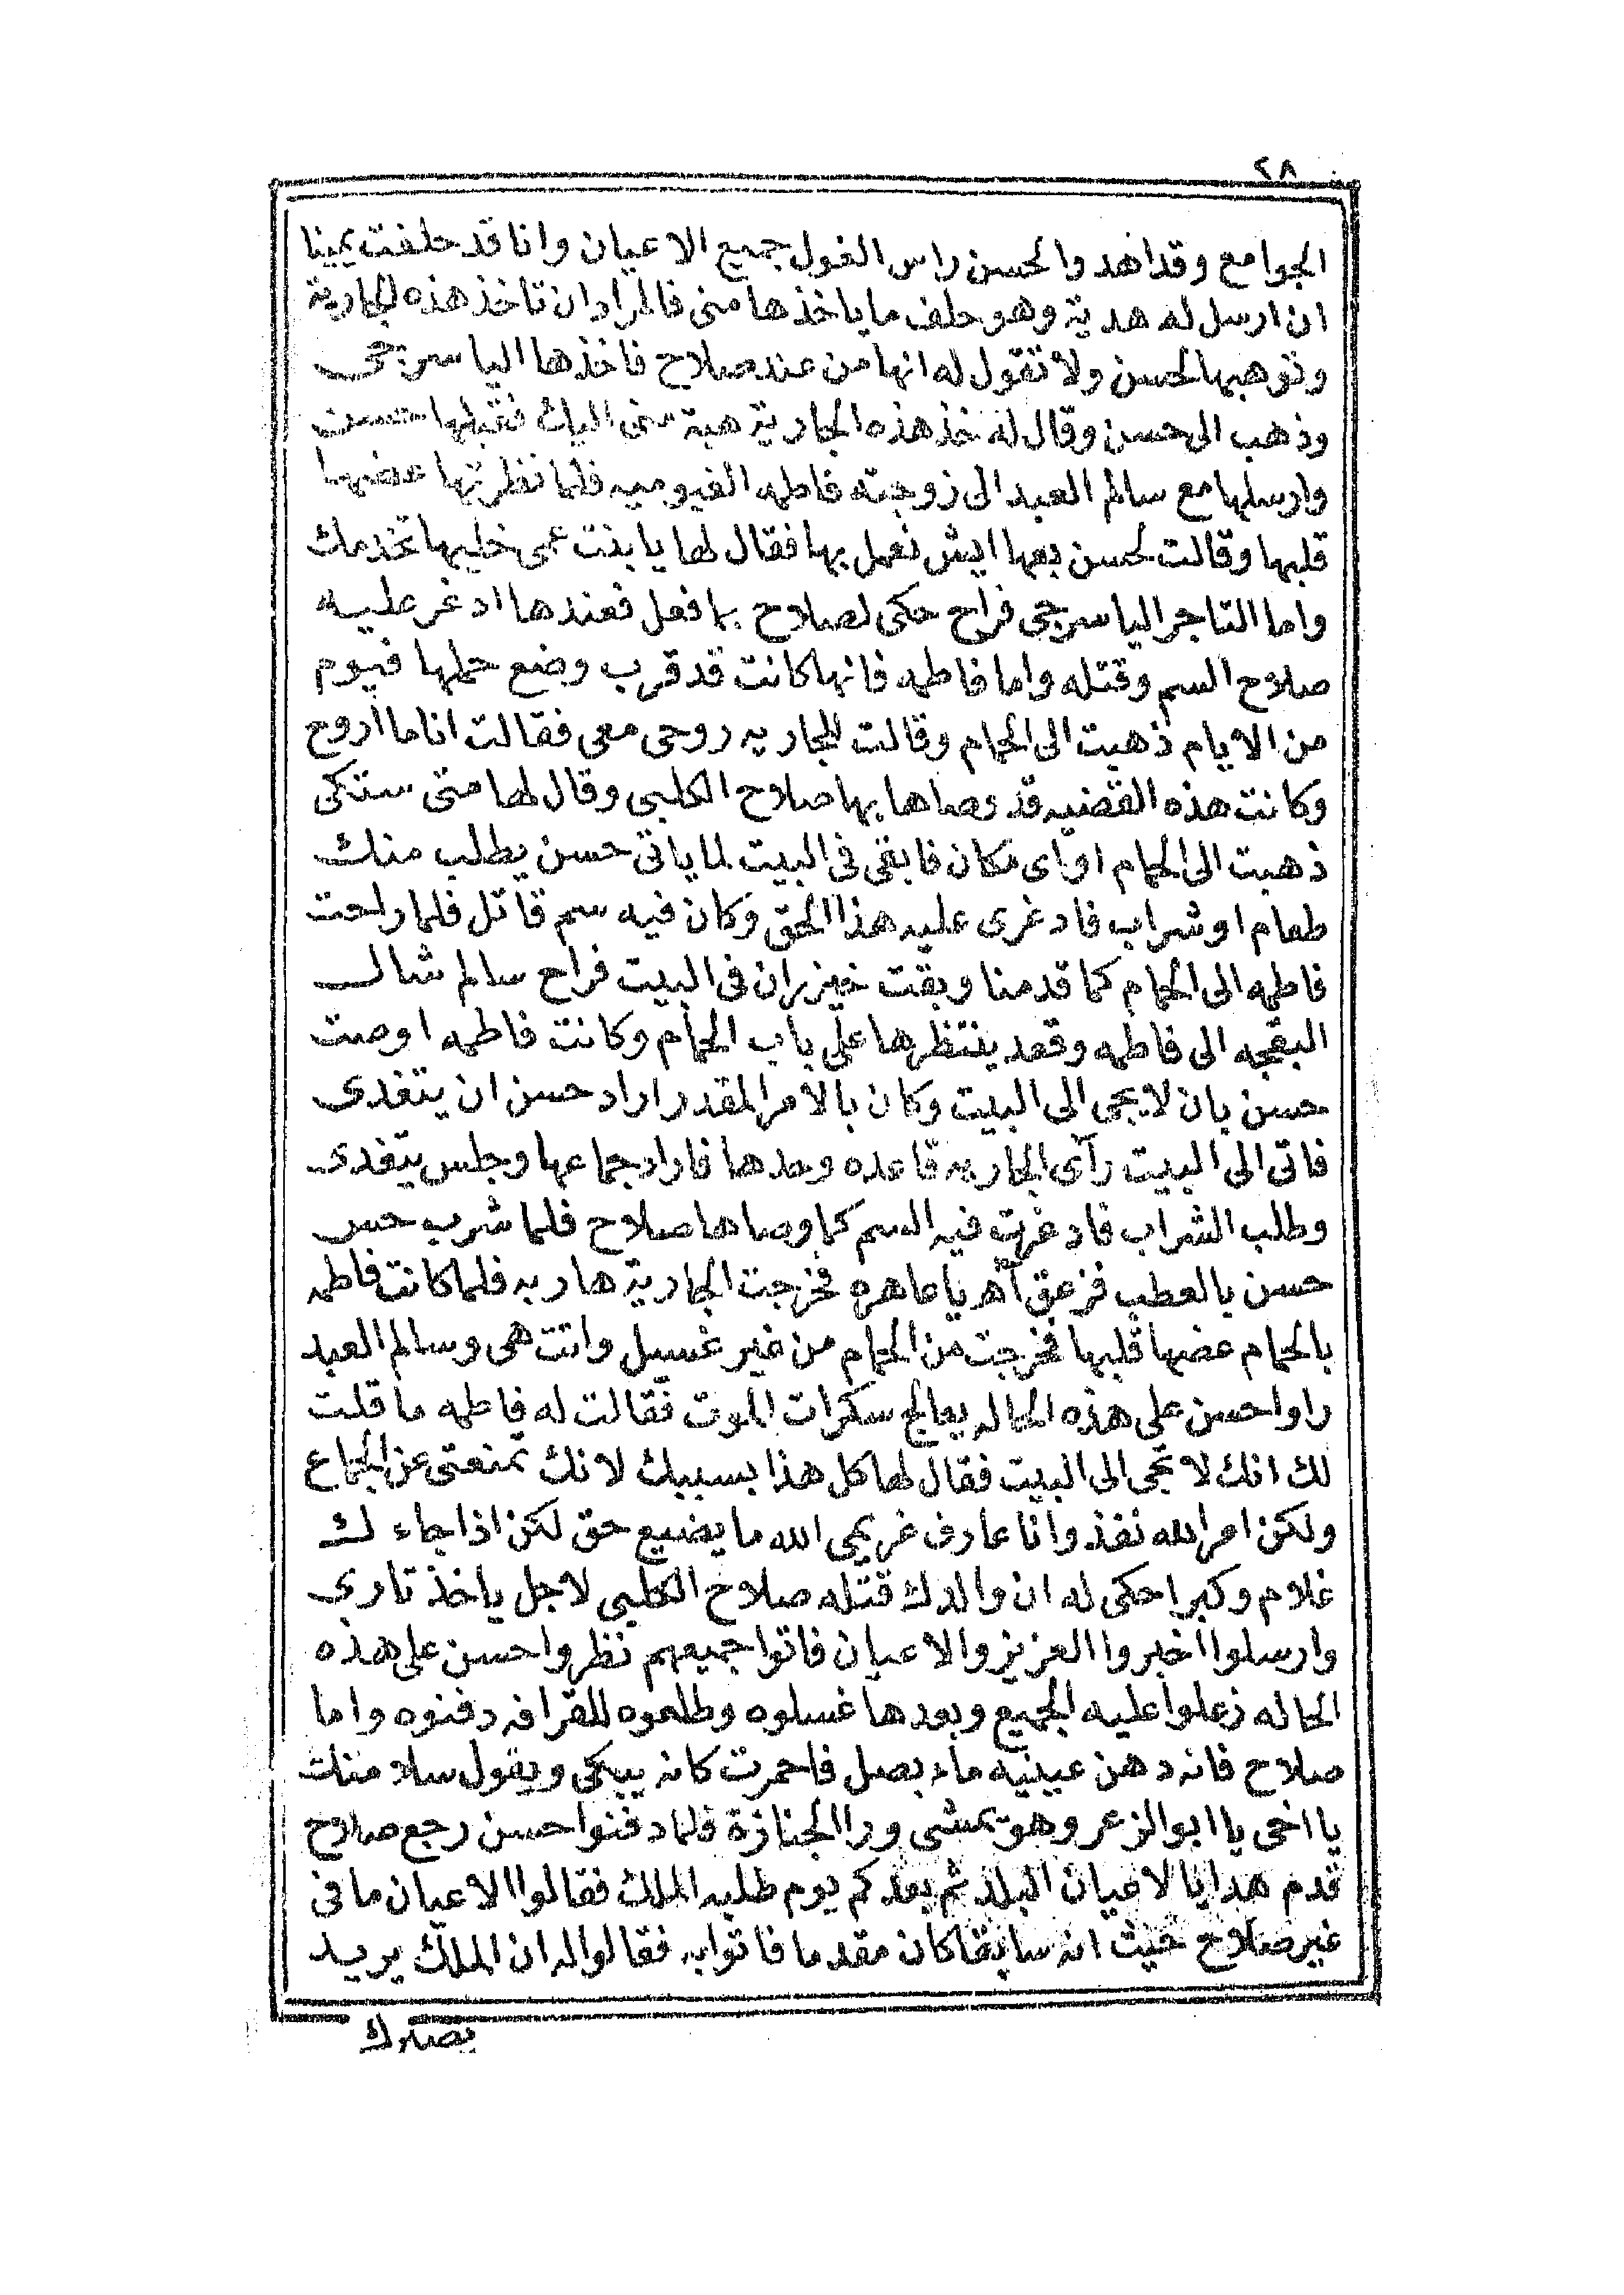 ٢٨
الجوامع وقد اهدوا لحسن راس الغول جميع الاعيان وانا قد حلفت يمينا
ان ارسل له هدية وهو حلف ما ياخذها منى فالمراد ان تاخذ هذه الجارية
وتوهبها لحسن ولا تقول له انها من عند صلاح فاخذها الياسرجى
وذهب الى حسن وقال له خذ هذه الجارية هبة منى اليك فقبلها حسن
وارسلها مع سالم العبد الى زوجته فاطمه الفيوميه فلما نظرتها عضها
قلبها وقالت لحسن بعها ايش نعمل بها فقال لها يا بنت عمى خليها تخدمك
واما التاجر الياسرجى فراح حكى لصلاح بما فعل فعندها ادغر عليه
صلاح السم وقتله واما فاطمه فانها كانت قد قرب وضع حملها فيوم
من الايام ذهبت الى الحمام وقالت للجاريه روحى معى فقالت انا ما أروح
وكانت هذه القضيه قد وصاها بها صلاح الكلبى وقال لها متى ستكى
ذهبت الى الحمام او اى مكان فابقى فى البيت لما ياتى حسن يطلب منك
طعام او شراب فادغرى عليه هذا الحق وكان فيه سم قاتل فلما راحت
فاطمه الى الحمام كما قدمنا وبقت خيزران فى البيت فراح سالم شال
البقجه الى فاطمه وقعد ينتظرها على باب الحمام وكانت فاطمه اوصت
حسن بان لا يجى الى البيت وكان بالامر المقدر اراد حسن ان يتغدى
فاتى الى البيت رآى الجاريه قاعده وحدها فاراد جماعها وجلس يتغدى
وطلب الشراب فادغرت فيه السم كما وصاها صلاح فلما شرب حس
حسن بالعطب فزعق آه يا عاهره فخرجت الجارية هاربه فلما كانت فاطمه
بالحمام عضها قلبها فخرجت من الحمام من غير غسيل واتت هى وسالم العبد
راوا حسن على هذه الحاله يعالج سكرات الموت فقالت له فاطمه ما قلت
لك انك لا تجى الى البيت فقال لها كل هذا بسببك لانك تمنعتى عن الجماع
ولكن امر الله نفذ وانا عارف غريمى الله ما يضيع حق لكن اذا جاء لك
غلام وكبر احكى له ان والدك قتله صلاح الكلبى لاجل ياخذ تارى
وارسلوا اخبروا العزيز والاعيان فاتوا جميعهم نظروا حسن على هذه
الحاله زعلوا عليه الجميع وبعدها غسلوه وطلعوه للقرافه دفنوه واما
صلاح فانه دهن عينيه ماء بصل فاحمرت كانه يبكى ويقول سلامتك
يا اخى يا ابو الزعر وهو يمشى ورا الجنازة فلما دفنوا حسن رجع صلاح
قدم هدايا لاعيان البلد ثم بعد كم يوم طلبه الملك فقالوا الاعيان ما فى
غير صلاح حيث انه سابقا كان مقدما فاتوا به فقالوا له ان الملك يريد